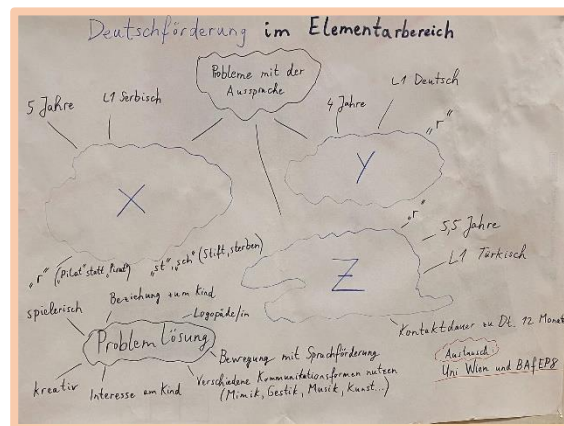 Deutschförderung im Elementarbereich
Probleme mit der
Aussprache
5 Jahre
L1 Serbisch
X
"r" ("Pilat" statt "Pirat")
"st", "sch" (Stift, sterben)
4 Jahre
L1 Deutsch
"r"
Y
"r"
5,5 Jahre
L1 Türkisch
Z
Kontaktdauer zu Dt. 12 Monate
Problemlösung
spielerisch
Beziehung zum Kind
Logopäde/in
Bewegung mit Sprachförderung
Verschiedene Kommunikationsformen nutzen
(Mimik, Gestik, Musik, Kunst...)
Interesse am Kind
kreativ
Austausch
Uni Wien und BAfEP8